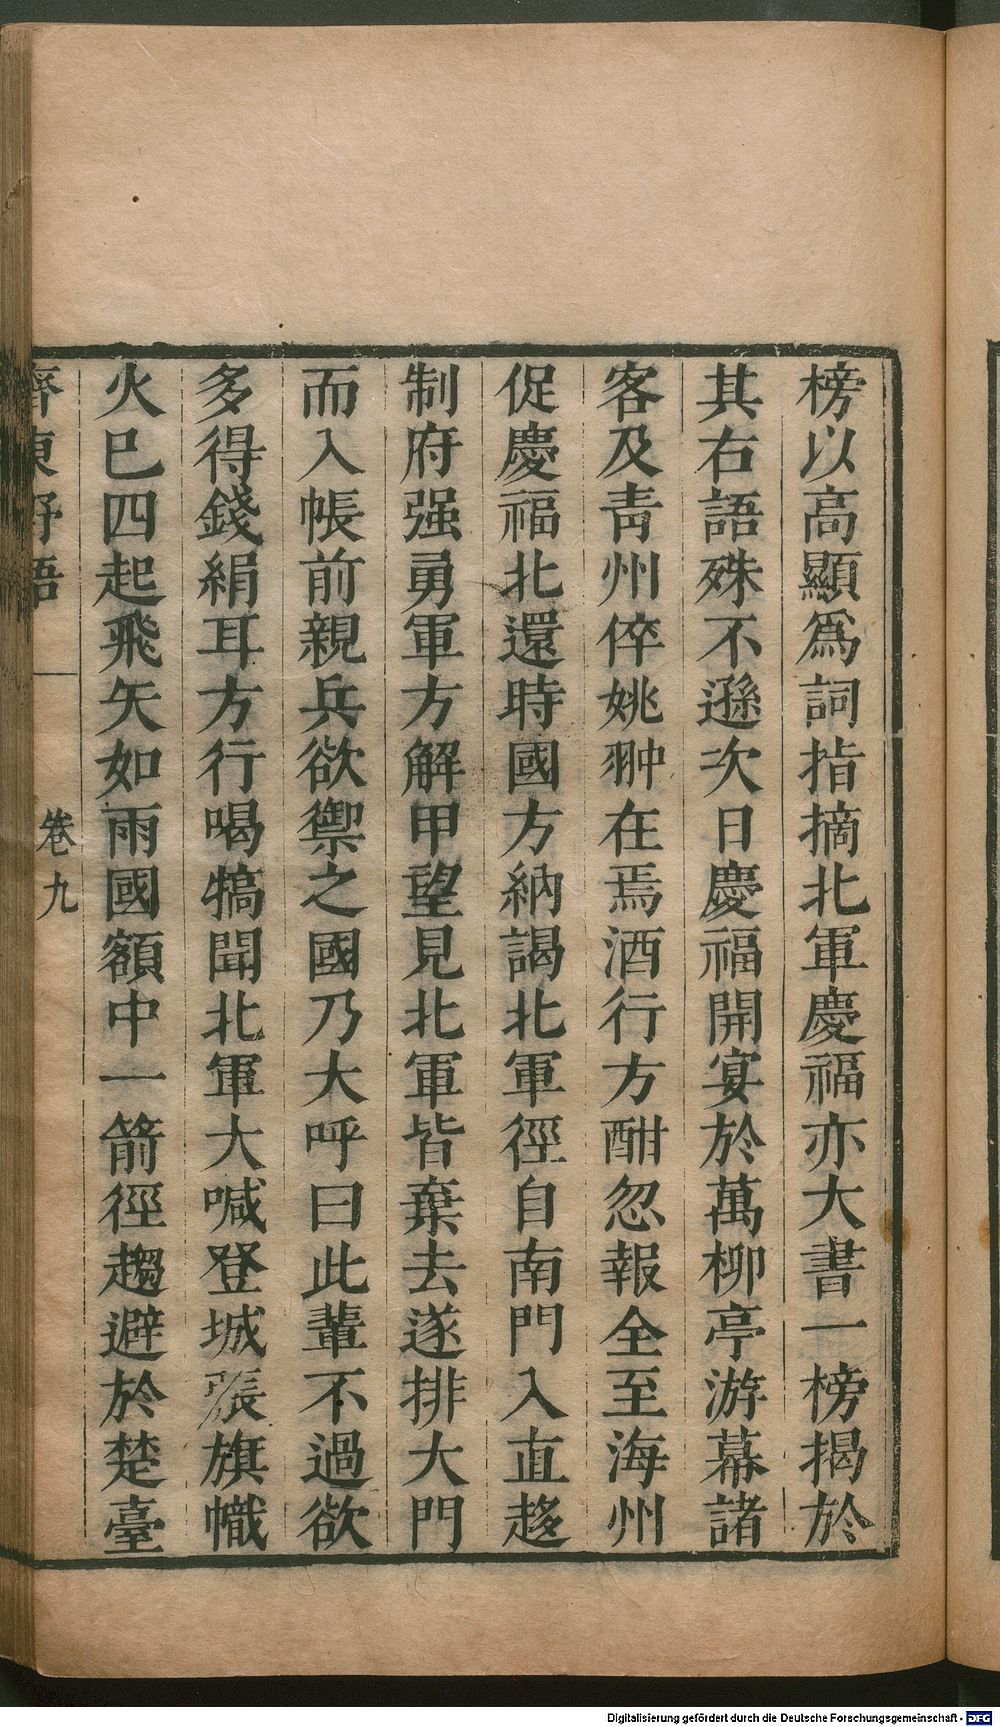 榜以高顯爲詞指摘北軍慶福亦大書一榜揭於
其右語殊不遜次日慶福開宴於萬柳亭游幕諸
客及青州倅姚翀在焉酒行方酣忽報全至海州
促慶福北還時國方納謁北軍徑自南門入直趍
制府强勇軍方解甲望見北軍皆棄去遂排大門
而入帳前親兵欲禦之國乃大呼曰此輩不過欲
多得錢絹耳方行喝犒聞北軍大喊登城張旗幟
火巳四起飛矢如雨國額中一箭徑趨避於楚臺
齊東野語 卷九
Digitalisierung gefördert durch die Deutsche Forschungsgemeinschaft - DFG